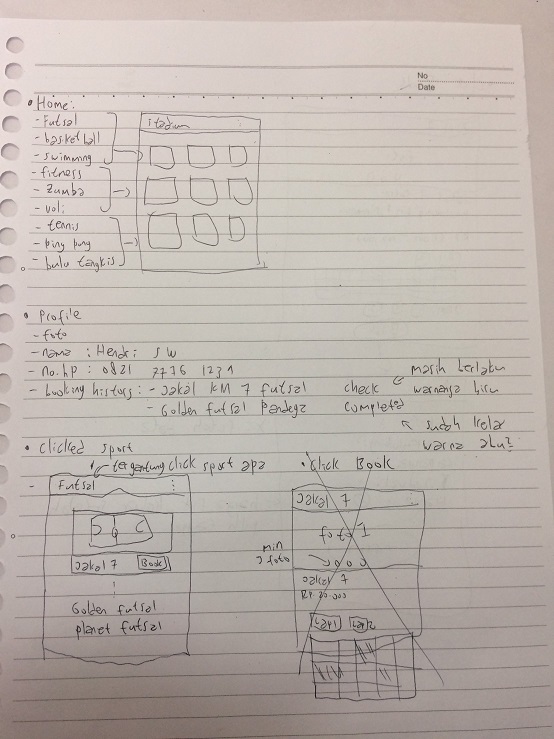 No
Date
• Home:
- Futsal
- basket ball
- swimming
- fitness
- Zumba
- voli
- tennis
- ping pong
- bulu tangkis
Stadium
• Profile
- foto
- nama : Hendri SW
- no.hp : 0821 7776 1231
- booking history : - Jakal KM 7 futsal check
- Golden futsal Pandega completed
masih berlaku
warnanya biru
sudah kelar
warna abu²
• Clicked sport
tergantung click sport apa
- Futsal
Jakal 7 Book
Golden futsal
planet futsal
• Click Book
Jakal 7
foto 1
min
3 foto
Jakal 7
Lap 1 Lap 2